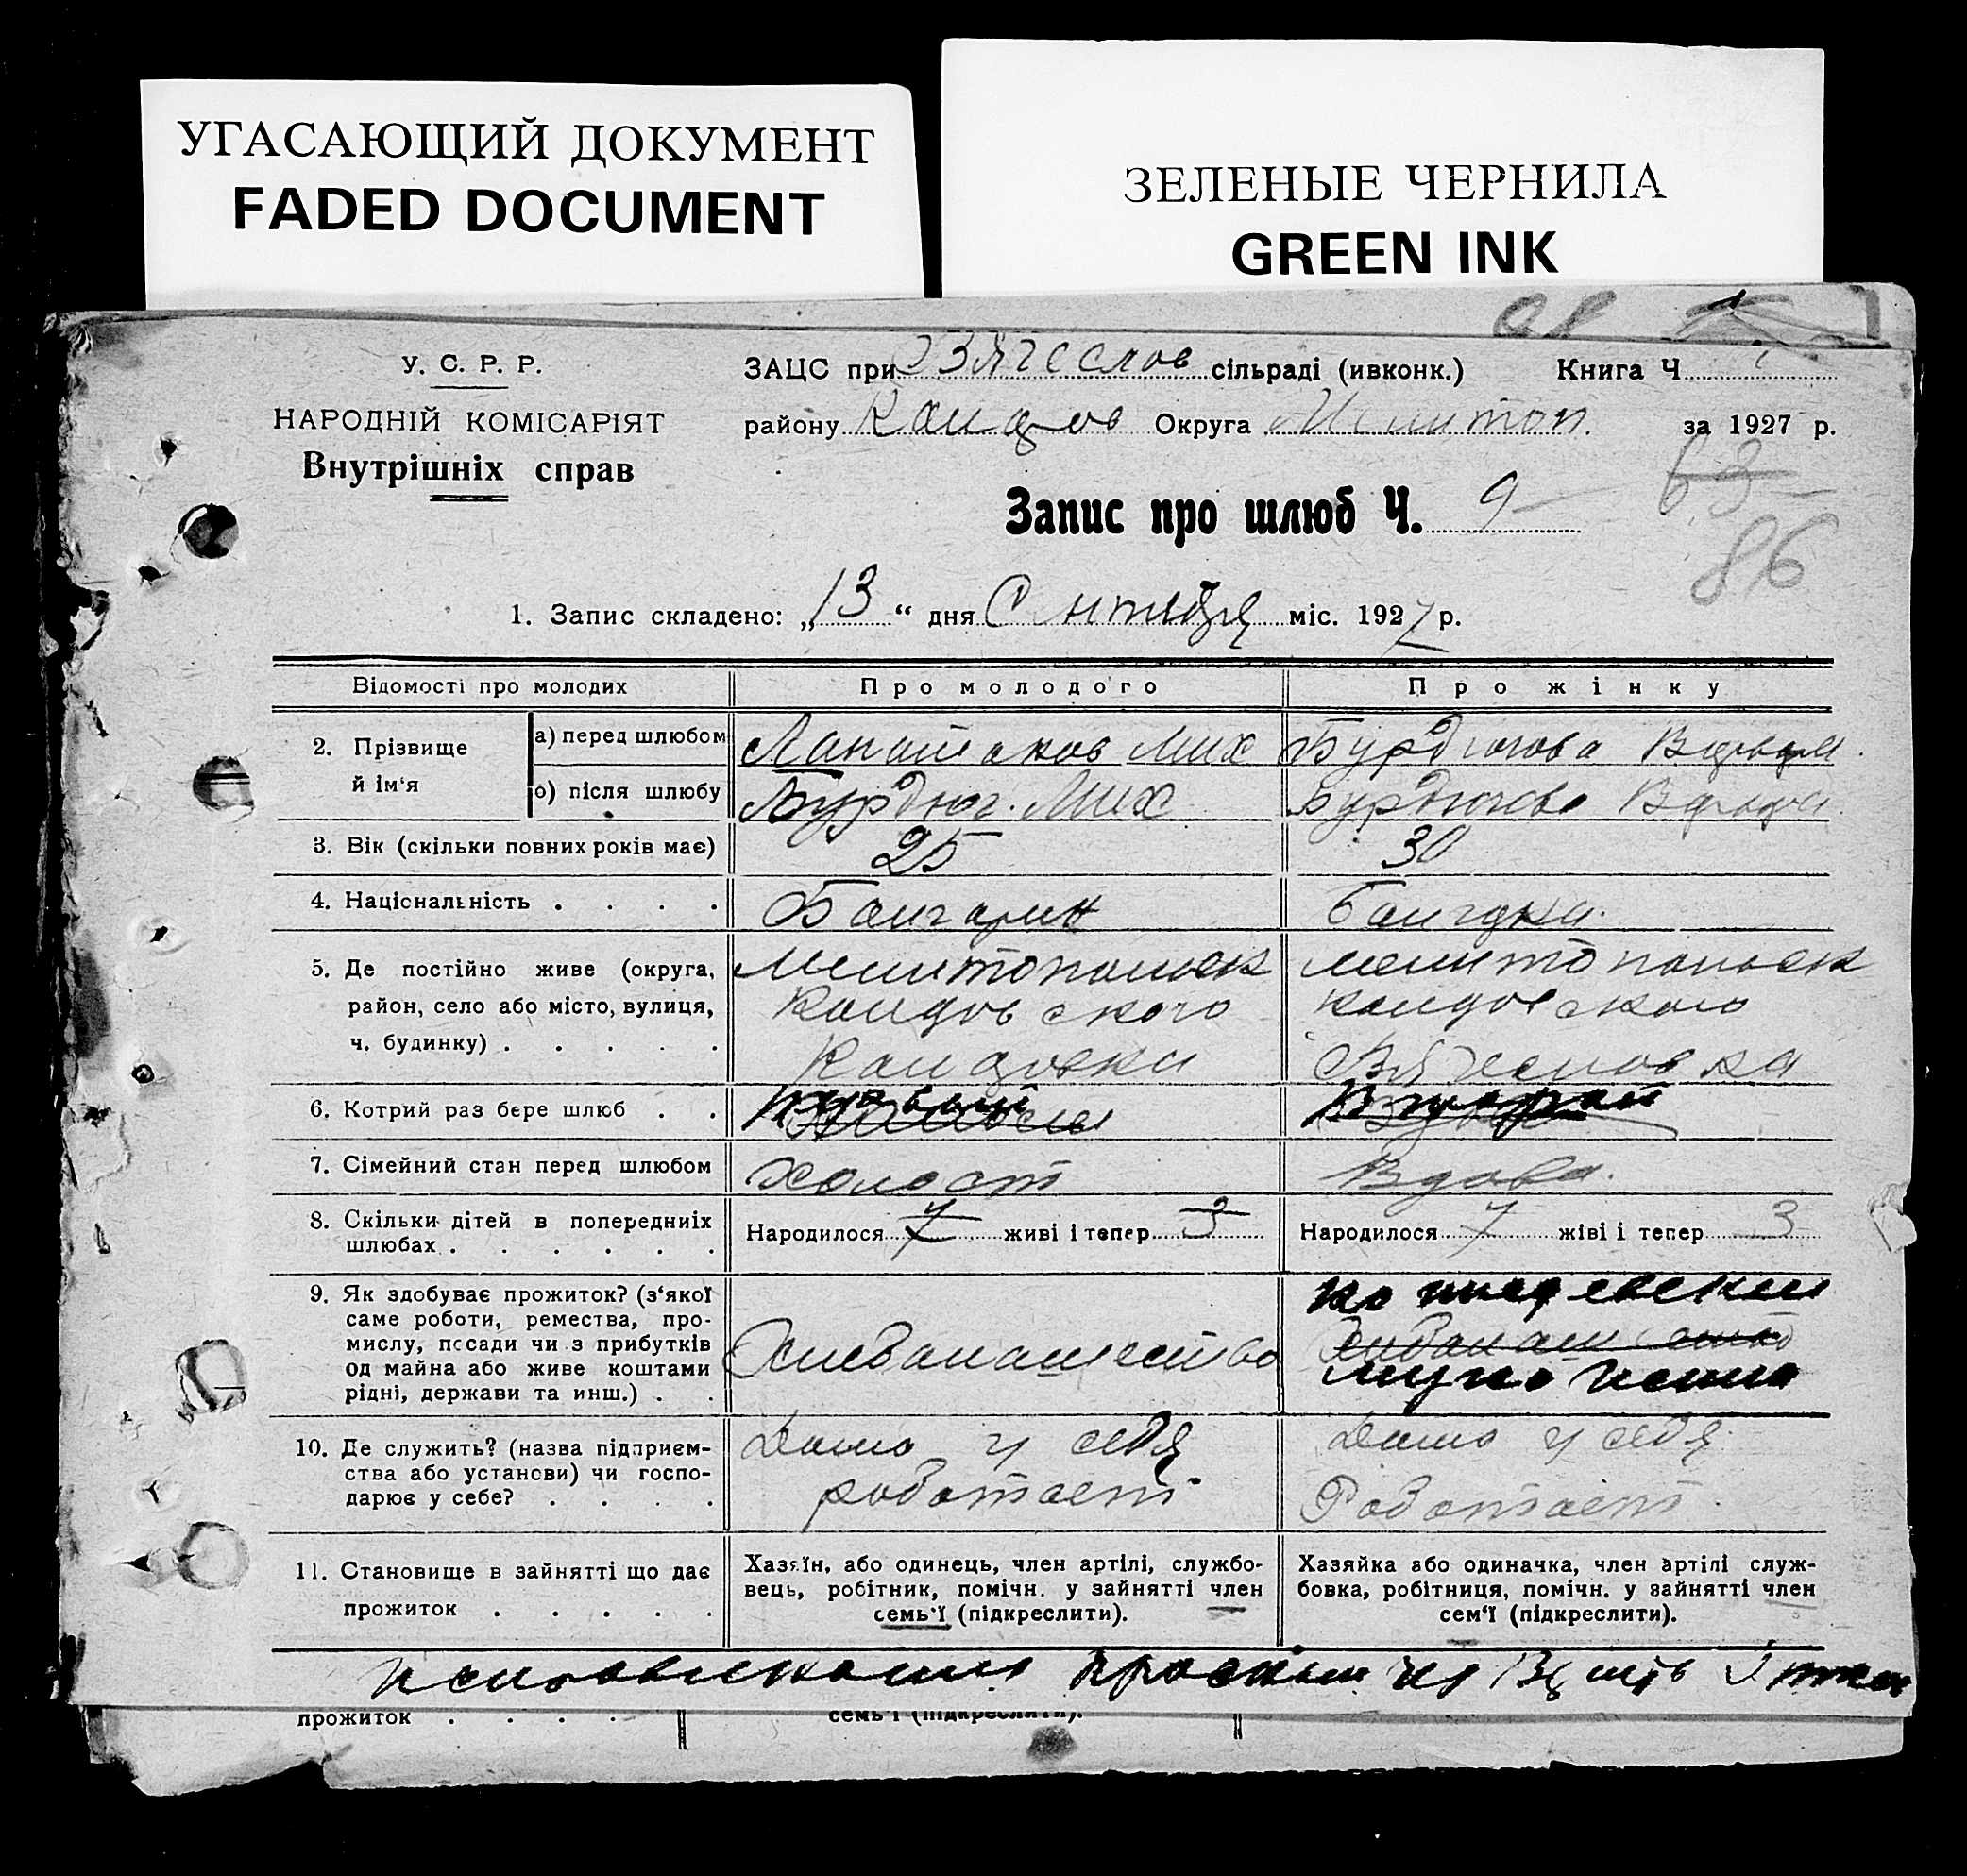 УГАСАЮЩИЙ ДОКУМЕНТ
FADED DOCUMENT
ЗЕЛЕНЫЕ ЧЕРНИЛА
GREEN INK
У. С. Р. Р.
НАРОДНІЙ КОМІСАРІЯТ
Внутрішніх справ
ЗАЦС при Вячеслов сільраді (ивконк.) Книга Ч
району Колдов Округа Мелитоп. за 1927 р.
63
Запис про шлюб Ч. 9
86
1. Запис складено: „13“ дня Сентября міс. 1927 р.
Відомості про молодих
Про молодого
Про жінку
2. Прізвище й ім‘я
а) перед шлюбом
Мих
Бурдюгова
о) після шлюбу
Бурдюг. Мих
Бурдюгова
3. Вік (скільки повних років має)
25
30
4. Національність . . . .
Болгарин
Болгарка.
5. Де постійно живе (округа,
район, село або місто, вулиця,
ч. будинку) . . . . .
Мелитопольск
Колдовского
Колдовки
Мелитопольск
Колдовского
Вячесловка
6. Котрий раз бере шлюб . .
первый
Второй
7. Сімейний стан перед шлюбом
Холост
Вдова.
8. Скільки дітей в попередниіх
шлюбах . . . . . .
Народилося 7 живі і тепер 3
Народилося 7 жіві і тепер 3
9. Як здобуває прожиток? (з‘якої
саме роботи, ремества, про-
мислу, посади чи з прибутків
од майна або живе коштами
рідні, держави та инш.) . .
Хлебопашество
10. Де служить? (назва підприєм-
ства або установи) чи госпо-
дарює у себе? . . . .
Дома у себя
работает
Дома у себя
Работает.
11. Становище в зайнятті що дає
прожиток . . . . .
Хазяїн, або одинець, член артілі, службо-
вець, робітник, помічн. у зайнятті член
семь‘ї (підкреслити).
Хазяйка або одиначка, член артілі служ-
бовка, робітниця, помічн. у зайнятті член
сем‘ї (підкреслити).
прожиток . . . .
семь‘ї (підкреслити).